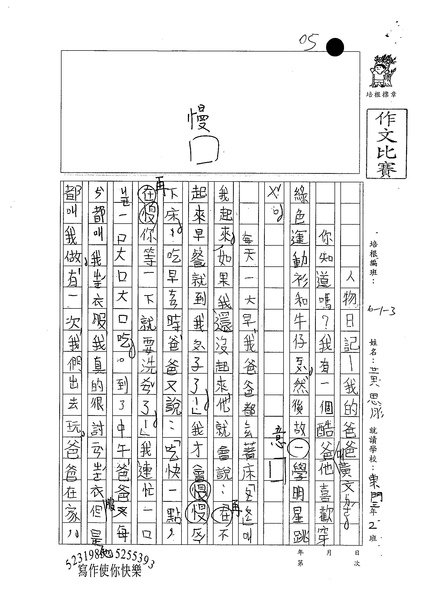 05
培根標章
作文比賽
慢
培根編班：6-1-3
姓名：黃思
就讀學校：東門二年2班
人物日記—我的爸爸黃文
你知道嗎？我有一個酷爸他喜歡穿
綠色運動衫和牛仔然後放一學明星跳
意
每天一大早我爸爸都著床
我起來如果我還沒起來他就會說：在不
再
起來早餐就到我肚子了！」我才會慢慢
下床，吃早時爸爸又說：「吃快一點，
再
在慢你等一下就要洗了！」我連忙一口
一口大口大口吃。到了中午爸爸又每
今都叫我坐衣服我真的很討衣但是
服
都叫我做有一次我們出去玩爸爸在家
年 月 日
第 次
5231981 5255393
寫作使你快樂